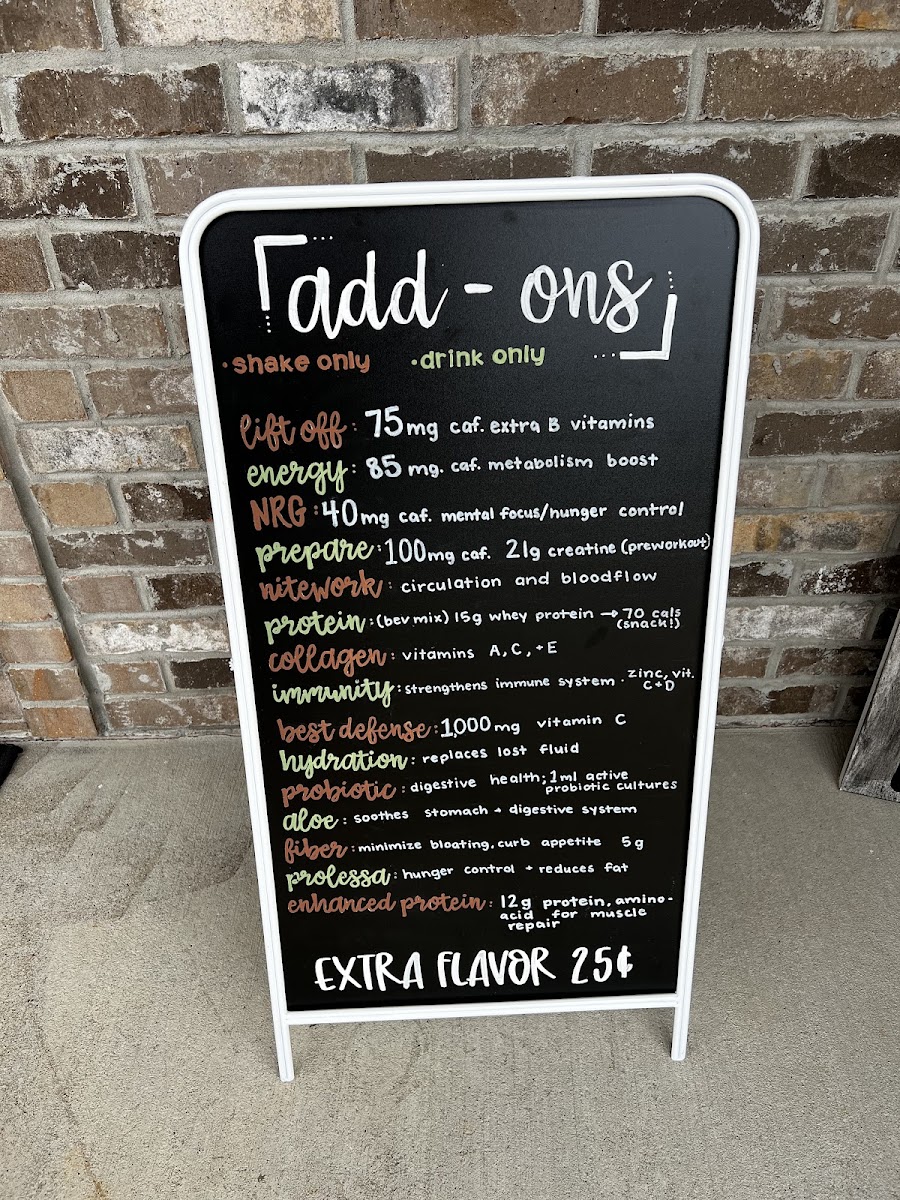 add - ons
•shake only •drink only
lift off: 75mg caf. extra B vitamins
energy: 85 mg. caf. metabolism boost
NRG: 40mg caf. mental focus/hunger control
prepare: 100mg caf. 21g creatine (preworkout)
nitework: circulation and bloodflow
protein: (bev mix) 15g whey protein → 70 cals
(snack!)
collagen: vitamins A, C, + E
immunity: strengthens immune system • zinc, vit.
C+D
best defense: 1,000mg vitamin C
hydration: replaces lost fluid
probiotic: digestive health; 1 ml active
probiotic cultures
aloe: soothes stomach + digestive system
fiber: minimize bloating, curb appetite 5g
prolessa: hunger control + reduces fat
enhanced protein: 12g protein, amino-
acid for muscle
repair
EXTRA FLAVOR 25¢